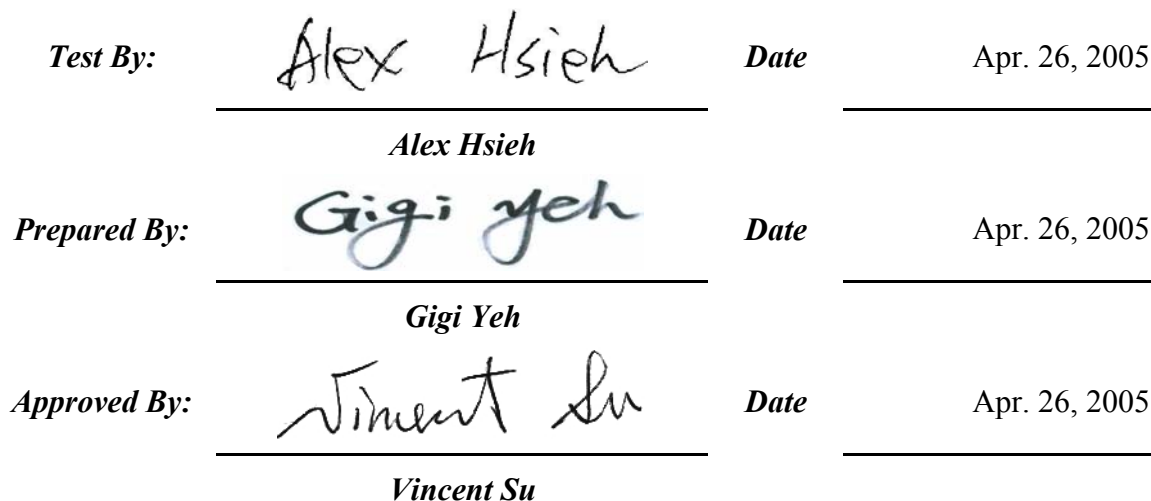 Test By: Alex Hsieh Date Apr. 26, 2005
Alex Hsieh
Prepared By: Gigi Yeh Date Apr. 26, 2005
Gigi Yeh
Approved By: Vincent Su Date Apr. 26, 2005
Vincent Su